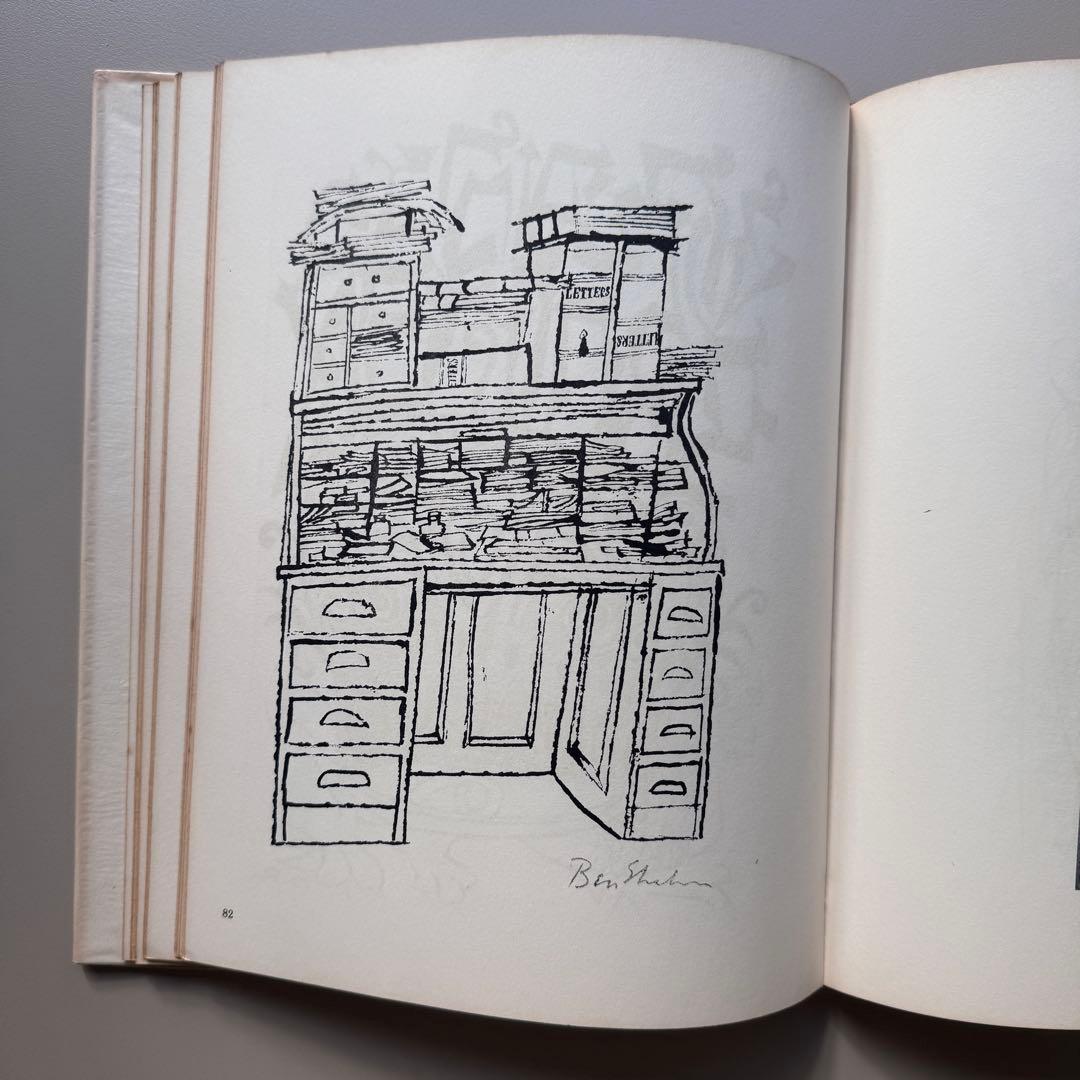 LETTERS
LETTERS
Ben Shahn
82